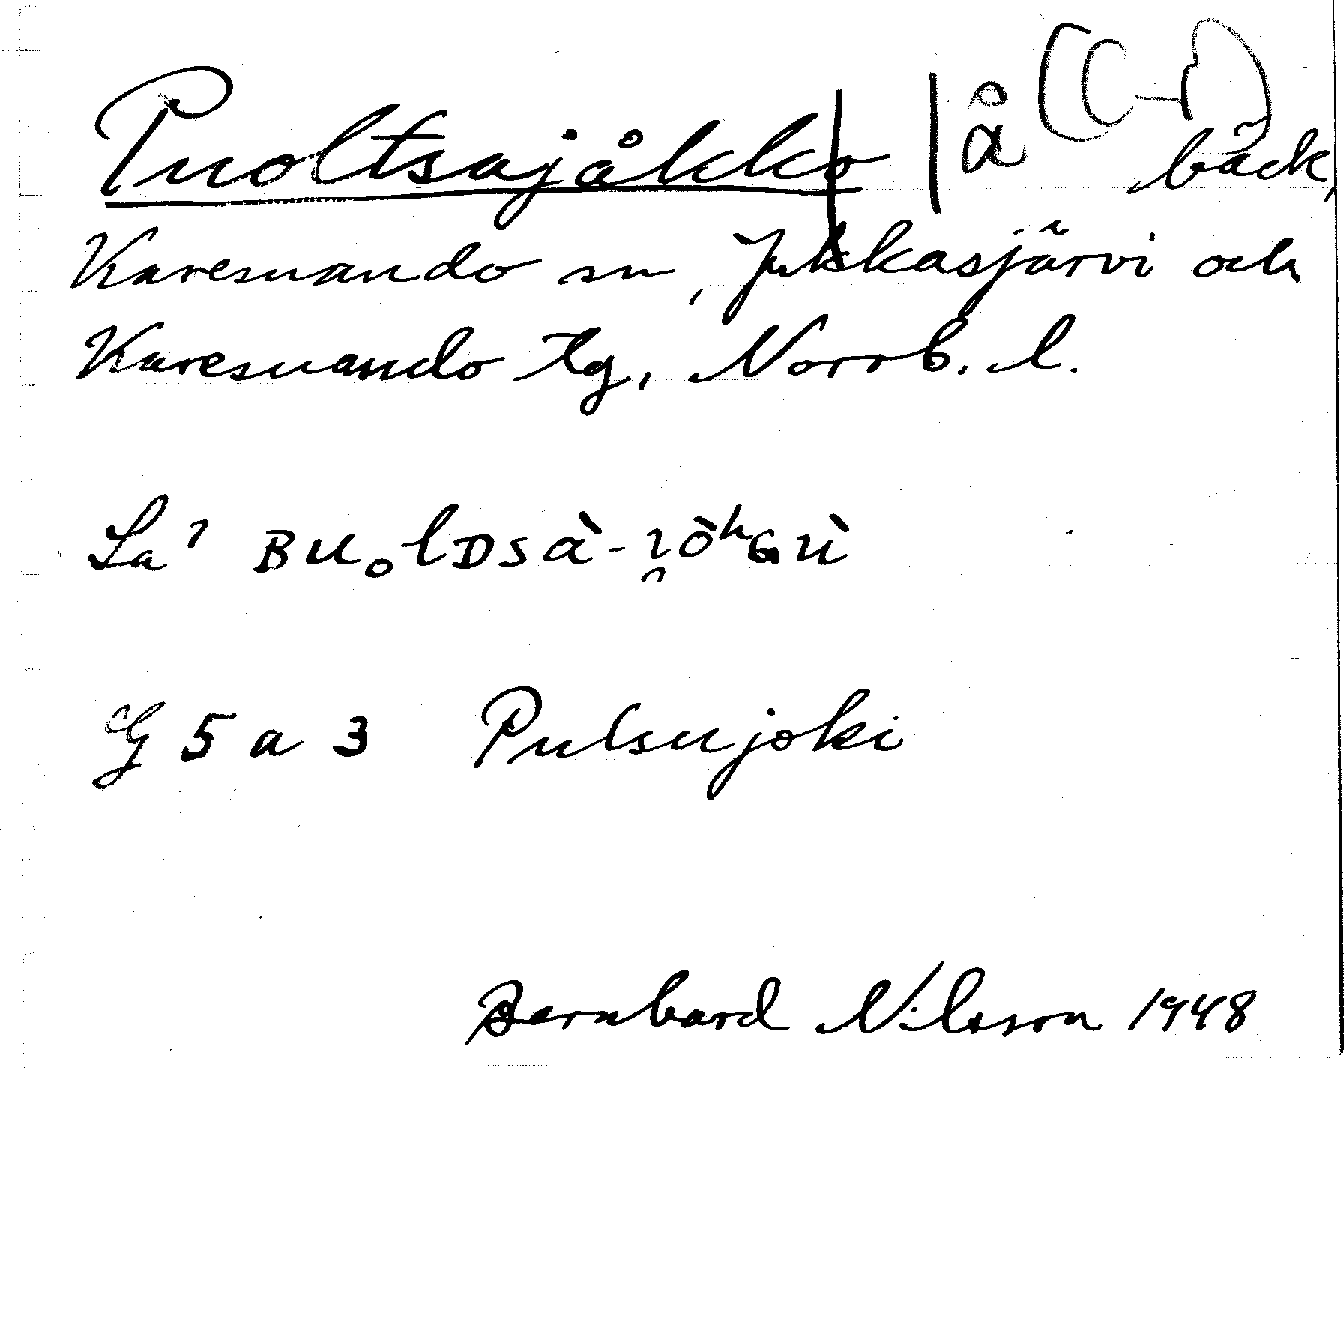 Puoltsajåkko | å ((-) bäck,
Karesuando sn, Jukkasjärvi och
Karesuando tg, Norrb. l.
La' BUoLDSÀ-ꞮÒʰGÙ
G 5 a 3 Pulsujoki
Bernhard Nilsson 1948